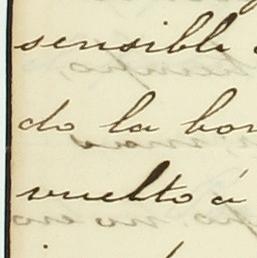 sensible
do la bon
vuelto á